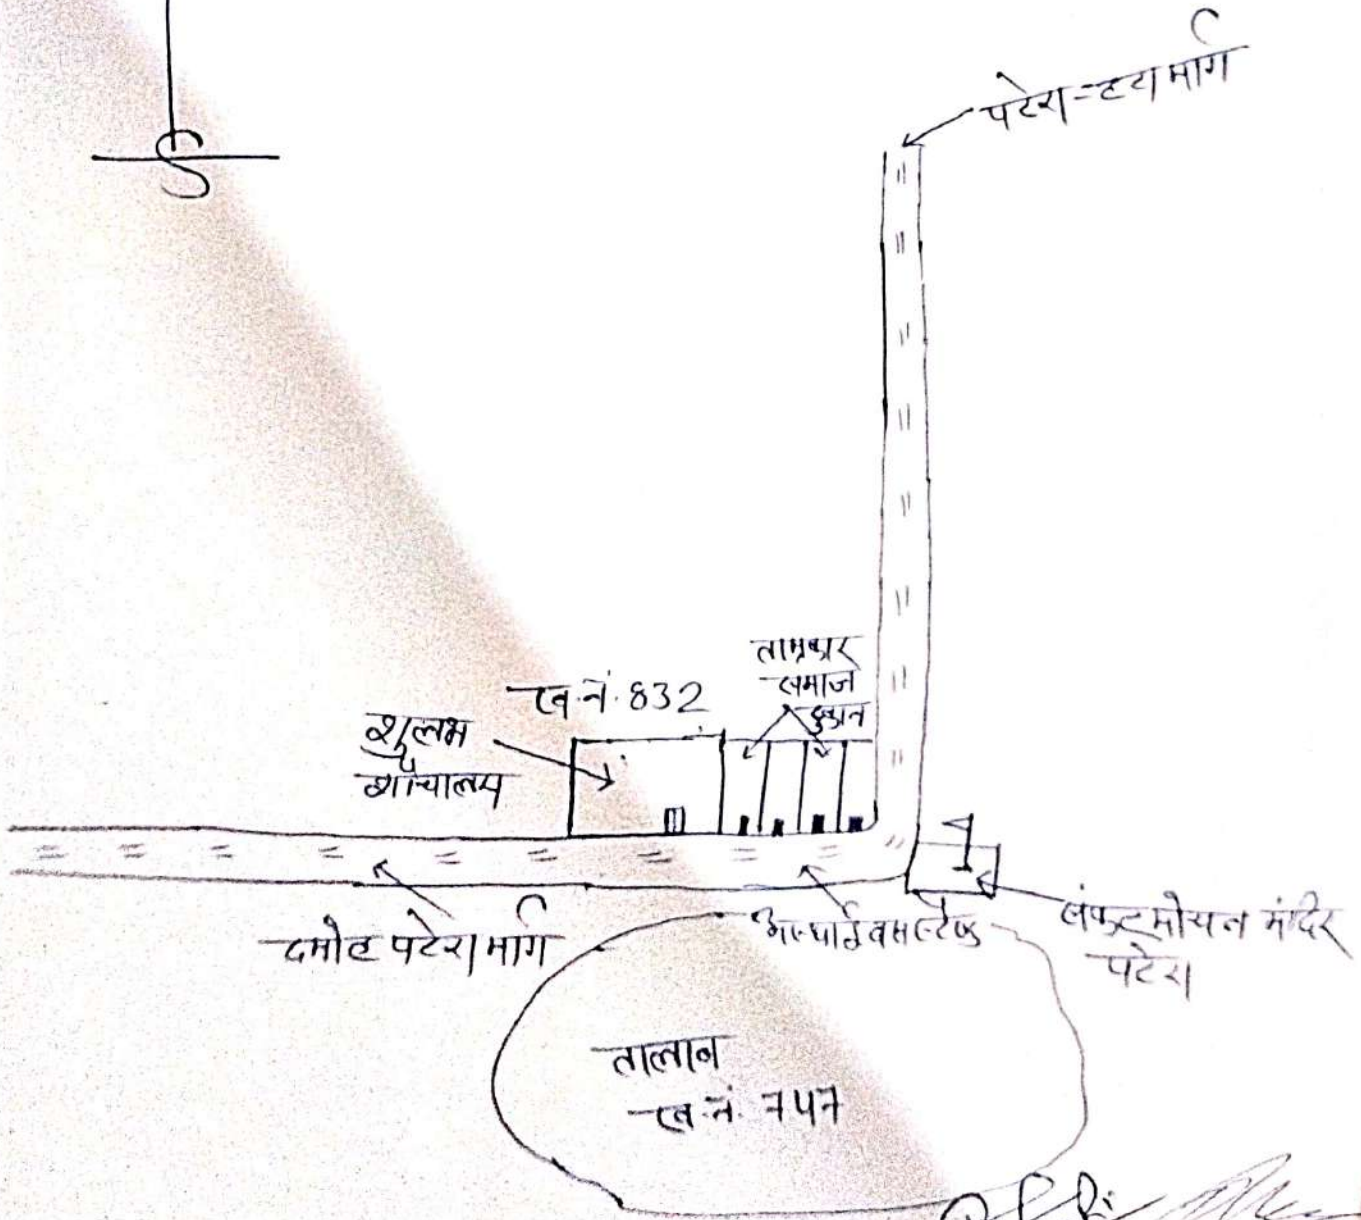 S
पटेरा-हटा मार्ग
ताम्रकार
समाज
दुकान
ख.नं. 832
शुलभ
शौचालय
दमोह पटेरा मार्ग
अस्थाई बसस्टेण्ड
संकटमोचन मंदिर
पटेरा
तालाब
ख.नं. 747